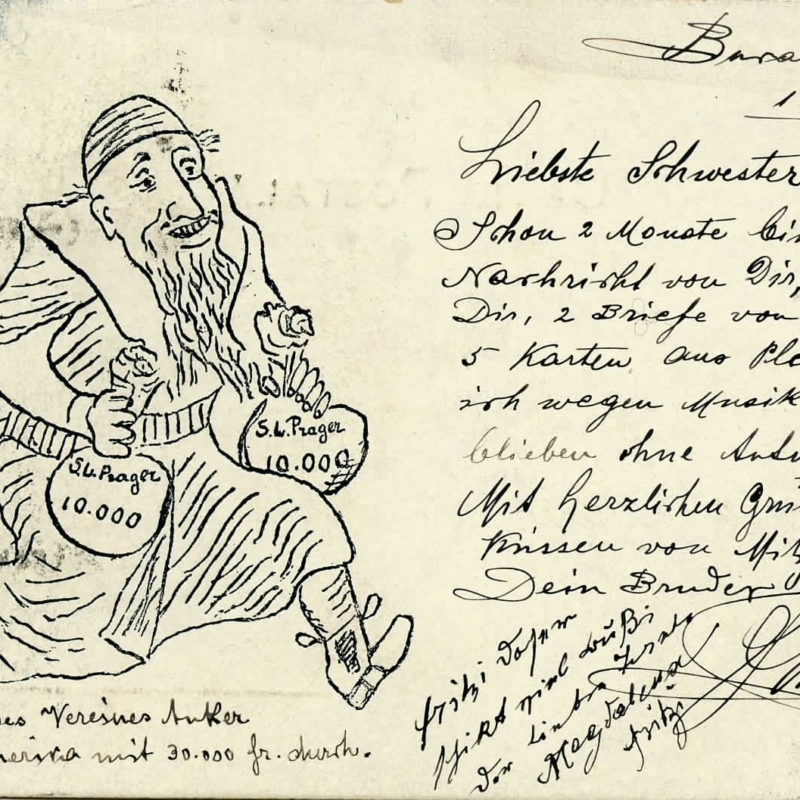 S. L. Prager
10.000
S. L. Prager
10.000
des Vereines Anker
merika mit 30.000 fr. durch.
Bura
1
Liebste Schwester
Schon 2 Monate bis
Nachricht von Dir,
Dir, 2 Briefe von
5 Karten aus Ple
ich wegen Musik
blieben ohne Antw
Mit herzlichen Grüs
Küssen von Mitz
Dein Bruder
fritzi
schikt viel Bußi
der lieben
Magdalena
fritzi